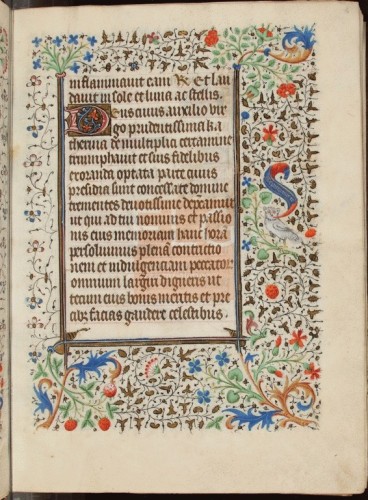 inflammauit eam R Et lau
dauit in sole et luna ac stellis.
Deus cuius auxilio vir
go prudentissima ka
therina de multiplici certamine
triumphauit et suis fidelibus
exoranda optata pacis cuius
presidia sunt concessa te domine
trementes deuotissime deprecamur
ut qui ad tui nominis et passio
nis eius memoriam hanc horam
persoluimus plenam contritio
nem et indulgenciam peccator
omnium largiri digneris ut
tecum eius bonis meritis et pre
cibus facias gaudere celestibus.